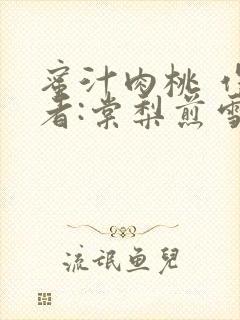 蜜汁肉桃
者:棠梨煎雪
流氓鱼兒